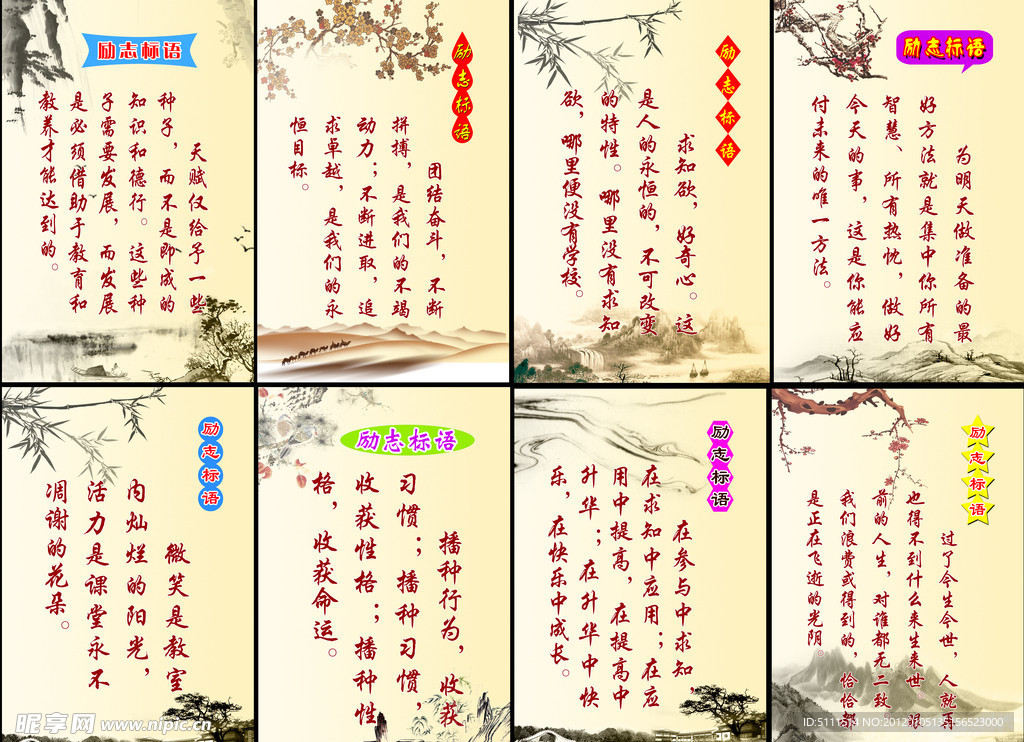 励志标语
天赋仅给予一些
种子，而不是即成的
知识和德行。这些种
子需要发展，而发展
是必须借助于教育和
教养才能达到的。
励志标语
团结奋斗，不断
拼搏，是我们的不竭
动力；不断进取，追
求卓越，是我们的永
恒目标。
励志标语
求知欲，好奇心。这
是人的永恒的，不可改变
的特性。哪里没有求知
欲，哪里便没有学校。
励志标语
为明天做准备的最
好方法就是集中你所有
智慧、所有热忱，做好
今天的事，这是你能应
付未来的唯一方法。
励志标语
微笑是教室
内灿烂的阳光，
活力是课堂永不
凋谢的花朵。
励志标语
播种行为，收获
习惯；播种习惯，
收获性格；播种性
格，收获命运。
励志标语
在参与中求知，
在求知中应用；在应
用中提高，在提高中
升华；在升华中快
乐，在快乐中成长。
励志标语
过了今生今世，人就
也得不到什么来生来世
前的人生，对谁都无二致
我们浪费或得到的，恰恰都
是正在飞逝的光阴。
昵享网 www.nipic.cn